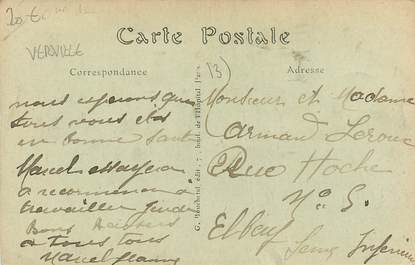 20 €
VERVILLE
Carte Postale
Correspondance
Adresse
13
nous espérons que
tous vous êtes
en bonne santé
Marcel
a recommencé a
travailler jeudi
Bons Baisers
a tous tous
Marcel Jeanne
G. Bouchetal édit. - 7, boul. de l'Hôpital Paris
Monsieur et Madame
Armand Leroux
Rue Hoche
No 5.
Elbeuf
Seine Inférieure